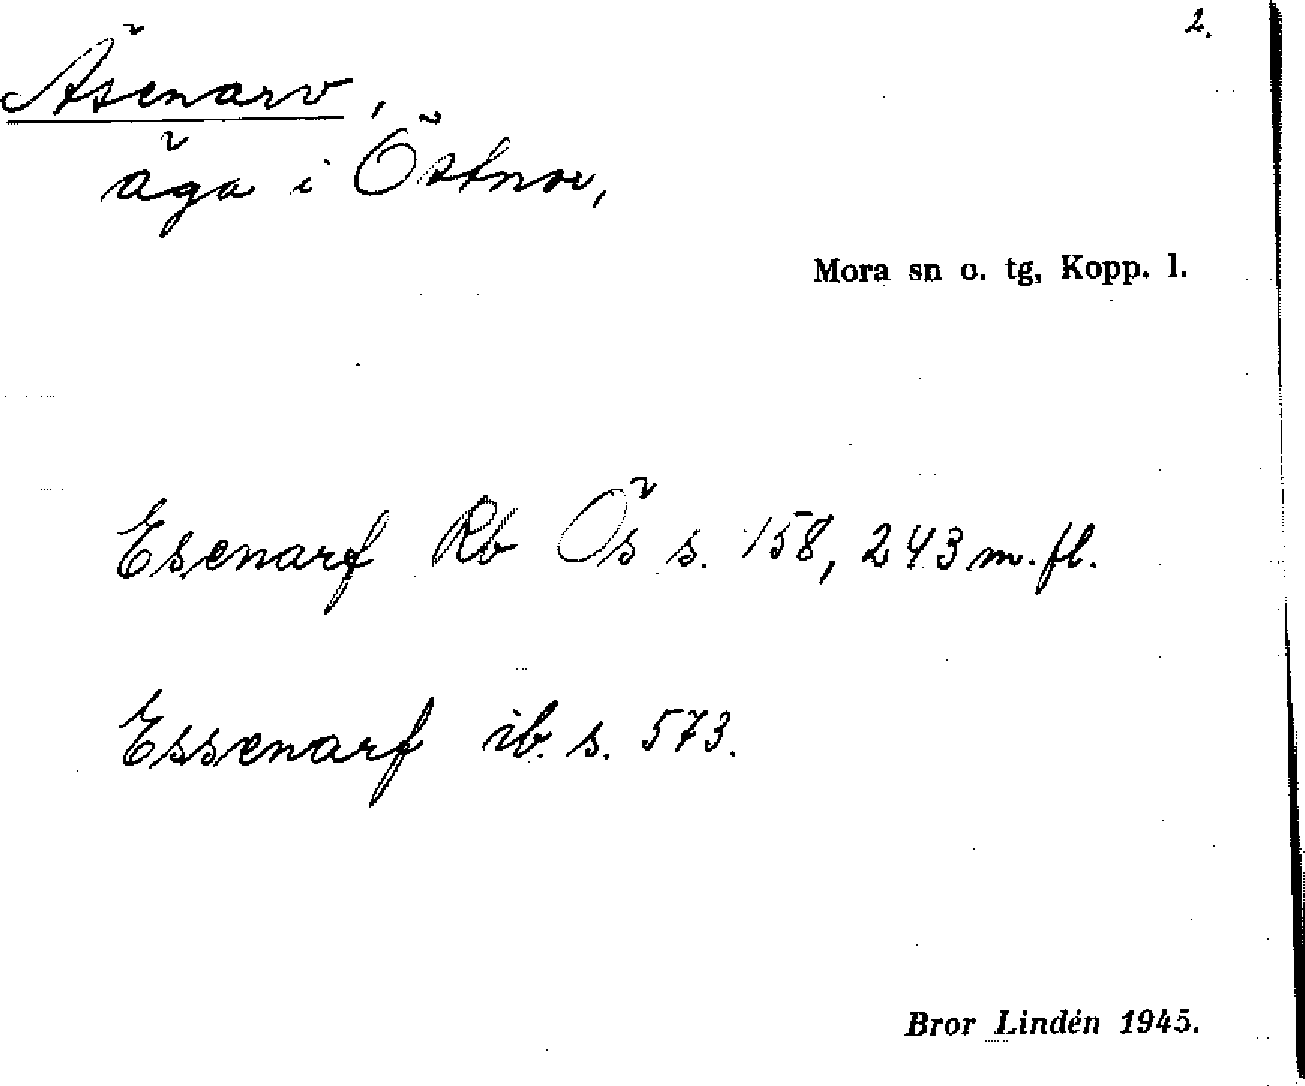 2.
Äsenarv,
äga i Östnor,
Mora sn o. tg, Kopp. l.
Esenarf Rb Ös s. 158, 243 m. fl.
Essenarf ib. s. 573.
Bror Lindén 1945.